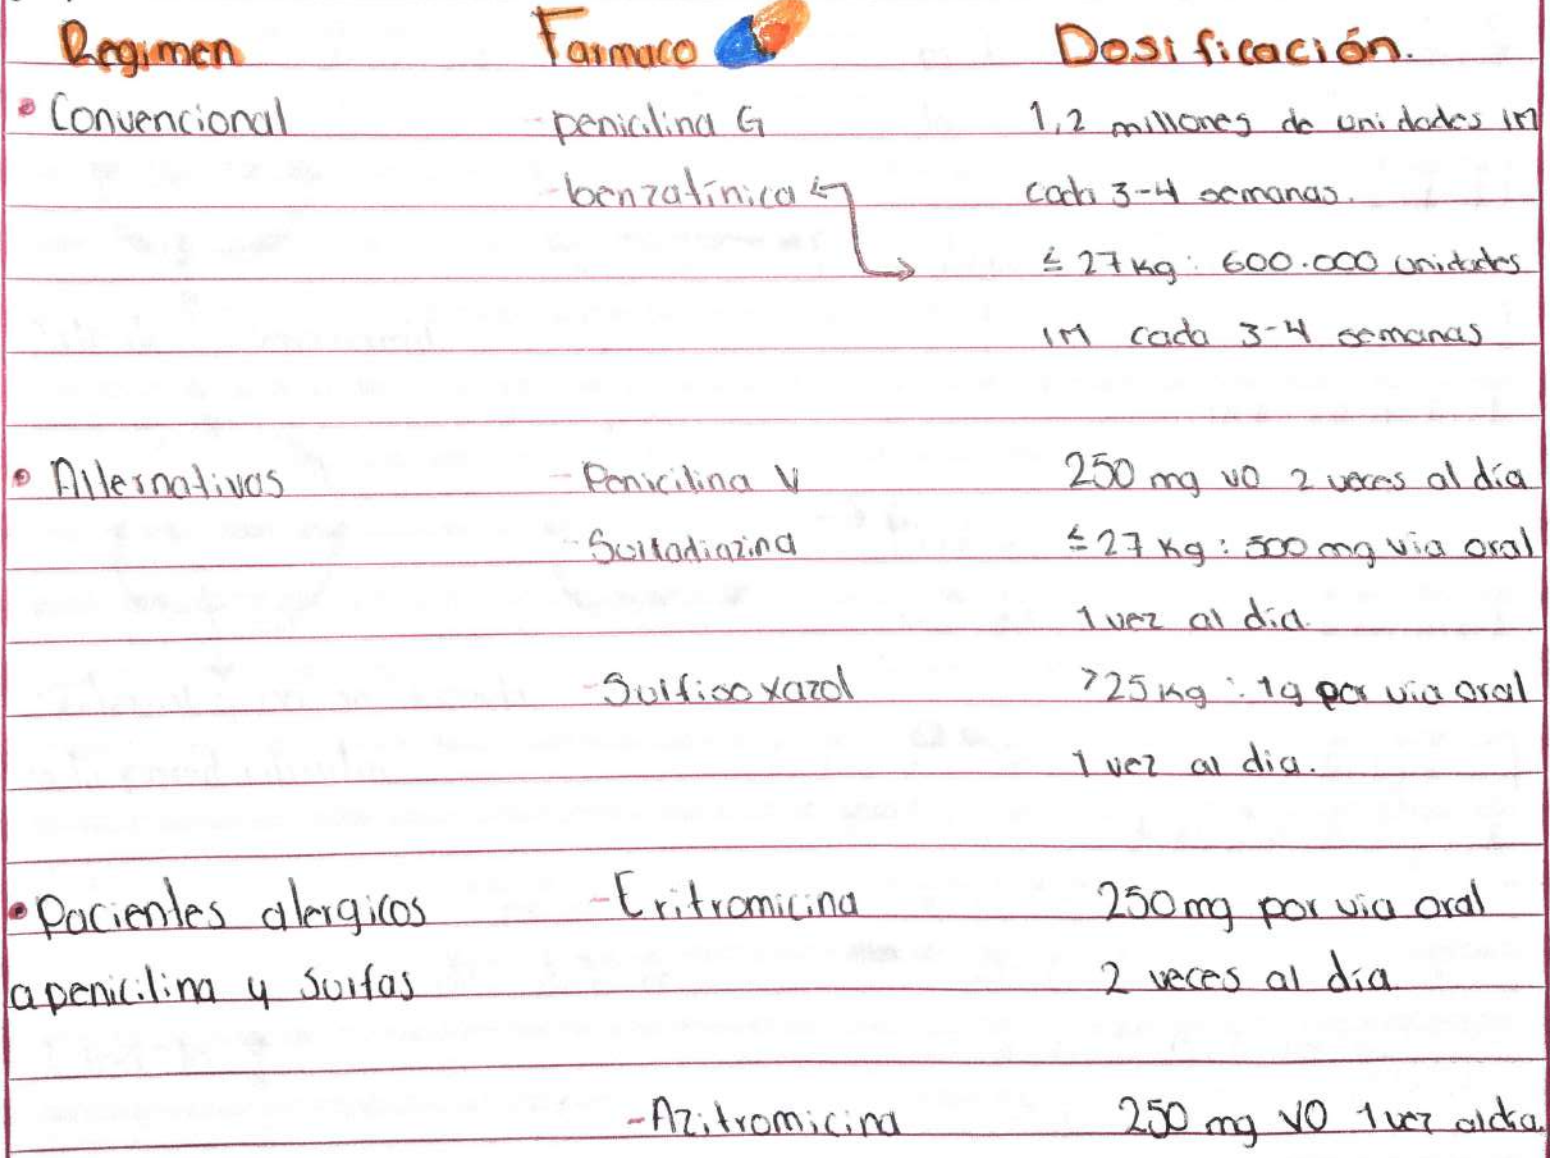 Regimen Farmaco Dosificación.
• Convencional - penicilina G 1,2 millones de unidades IM
- benzatínica cada 3-4 semanas.
≤ 27 Kg : 600.000 unidades
IM cada 3-4 semanas
• Alternativas - Penicilina V 250 mg VO 2 veces al día
- Sulfadiazina ≤ 27 Kg : 500 mg via oral
1 vez al día.
- Sulfisoxazol >25 Kg : 1g por via oral
1 vez al dia.
• Pacientes alergicos - Eritromicina 250 mg por via oral
a penicilina y Sulfas 2 veces al día
- Azitromicina 250 mg VO 1 vez al dia.